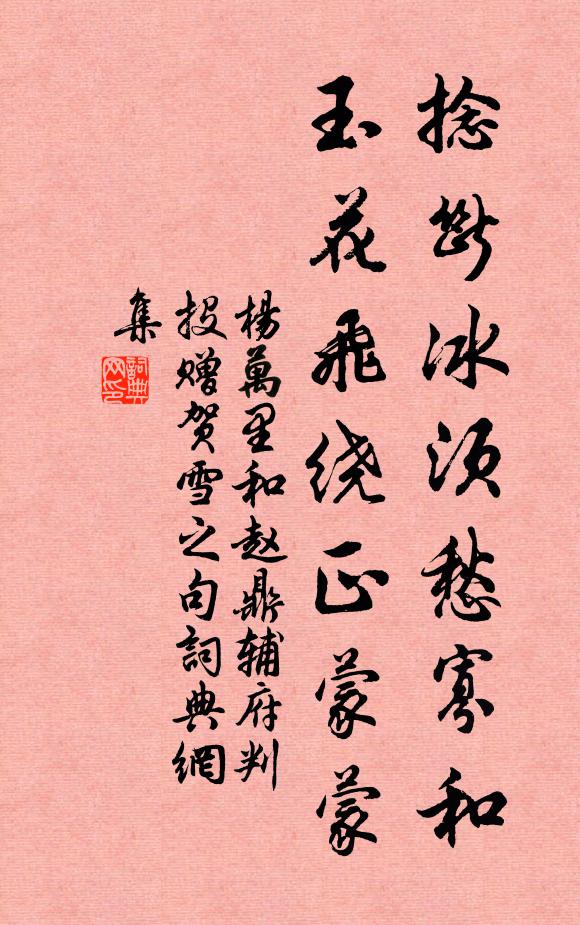 捻断冰须愁寡和
玉花飛绕正蒙蒙
楊萬里和赵鼎辅府判
投赠贺雪之句詞典網
集
詞典网印